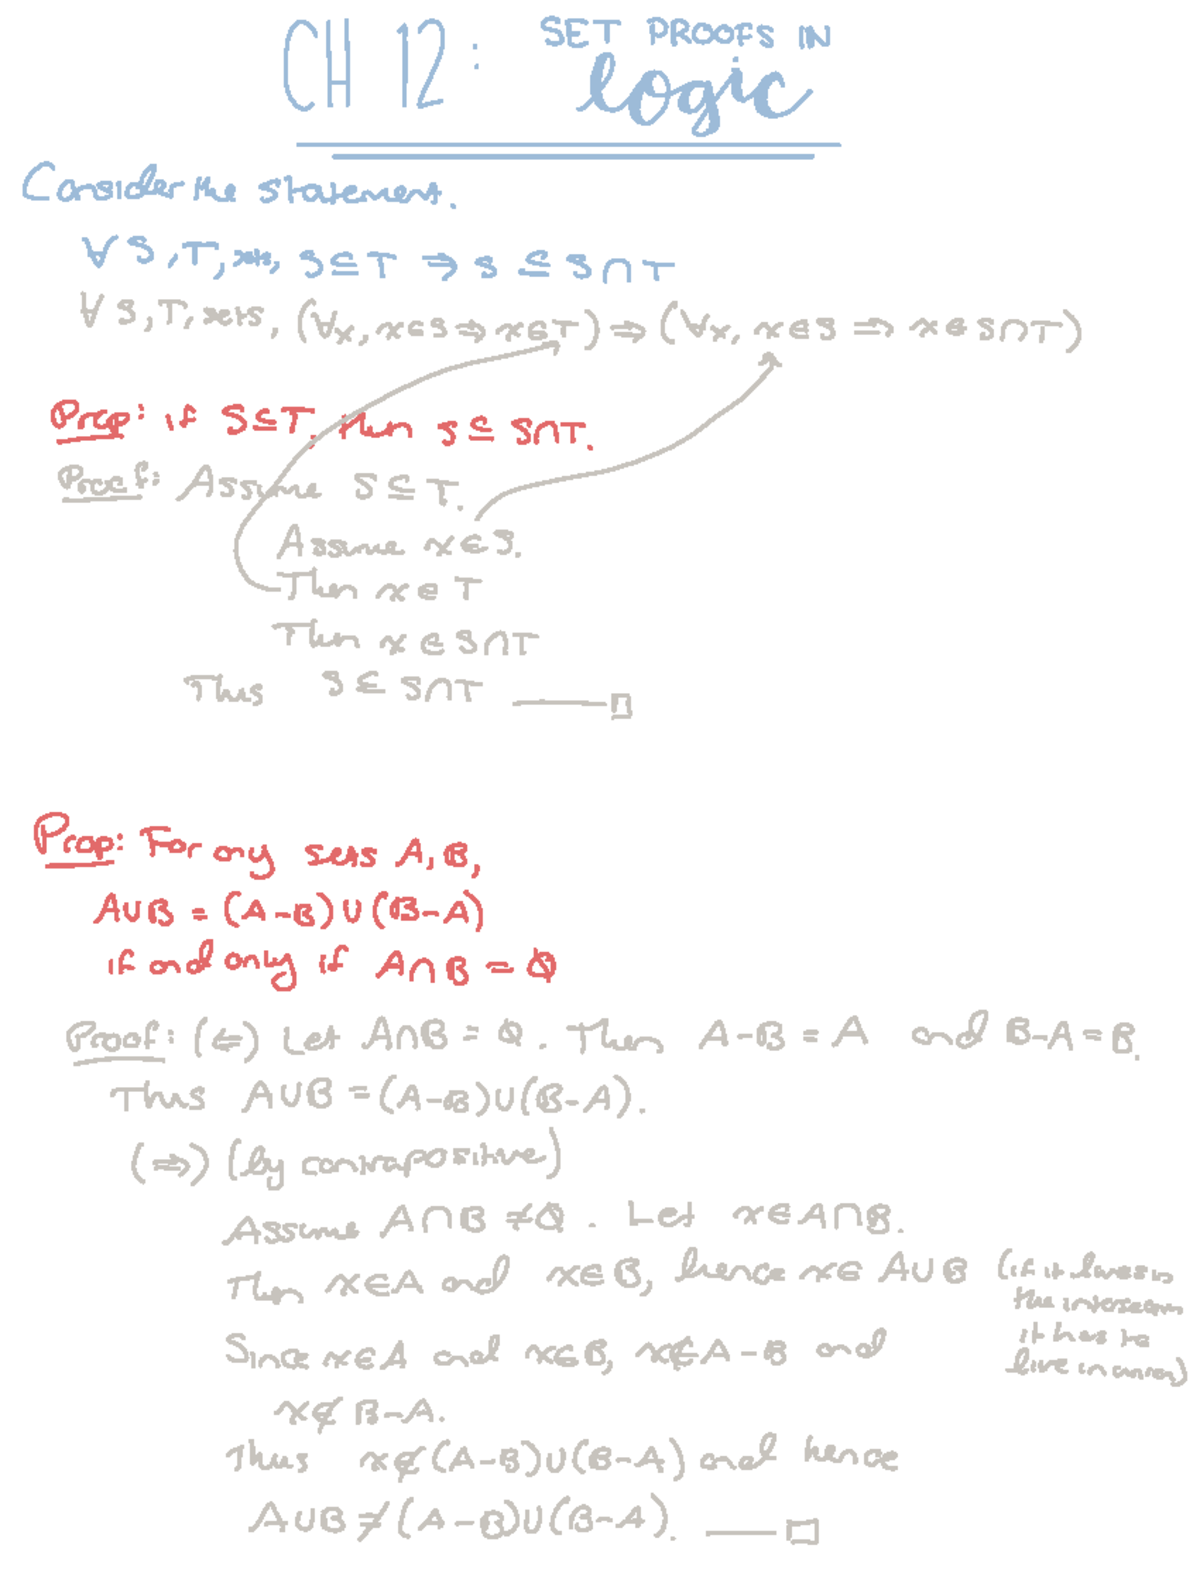 CH 12: SET PROOFS IN
logic
Consider the statement.
∀ S, T, sets, S ⊆ T ⇒ S ⊆ S ∩ T
∀ S, T, sets, (∀x, x ∈ S ⇒ x ∈ T) ⇒ (∀x, x ∈ S ⇒ x ∈ S ∩ T)
Prop: if S ⊆ T, then S ⊆ S ∩ T.
Proof: Assume S ⊆ T.
Assume x ∈ S.
Then x ∈ T
Then x ∈ S ∩ T
Thus S ⊆ S ∩ T —— □
Prop: For any sets A, B,
A ∪ B = (A - B) ∪ (B - A)
if and only if A ∩ B = ∅
Proof: (⇐) Let A ∩ B = ∅. Then A - B = A and B - A = B.
Thus A ∪ B = (A - B) ∪ (B - A).
(⇒) (by contrapositive)
Assume A ∩ B ≠ ∅. Let x ∈ A ∩ B.
Then x ∈ A and x ∈ B, hence x ∈ A ∪ B (if it lives in
the intersection
it has to
live in union)
Since x ∈ A and x ∈ B, x ∉ A - B and
x ∉ B - A.
Thus x ∉ (A - B) ∪ (B - A) and hence
A ∪ B ≠ (A - B) ∪ (B - A). —— □